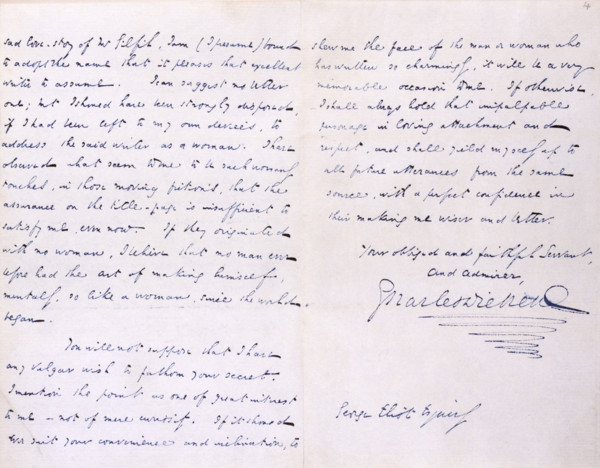 sad love-story of Mr Gilfil, I am (I presume) bound
to adopt the name that it pleases that excellent
writer to assume. I can suggest no better
one; but I should have been strongly disposed,
if I had been left to my own devices, to
address the said writer as a woman. I have
observed what seem to me to be such womanly
touches, in those moving fictions, that the
assurance on the title-page is insufficient to
satisfy me, even now. If they originated
with no woman, I believe that no man ever
before had the art of making himself,
mentally, so like a woman, since the world
began.
You will not suppose that I have
any vulgar wish to fathom your secret.
I mention the point as one of great interest
to me – not of mere curiosity. If it should
ever suit your convenience and inclination, to
4
shew me the face of the man or woman who
has written so charmingly, it will be a very
memorable occasion to me. If otherwise,
I shall always hold that impalpable
personage in loving attachment and
respect, and shall yield myself up to
all future utterances from the same
source, with a perfect confidence in
their making me wiser and better.
Your obliged and faithful Servant,
and admirer,
Charles Dickens
George Eliot Esquire